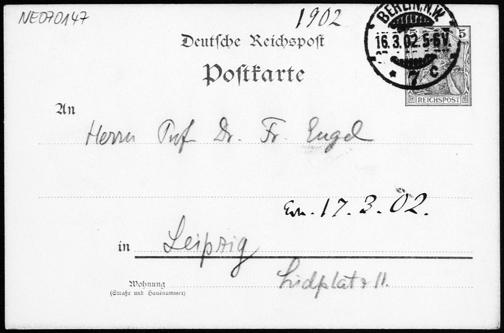 NE070147
1902
Deutsche Reichspost
Postkarte
BERLIN, N.W.
16.3.02. 5-6 N.
* 7 c
5
REICHSPOST
An
Herrn Prof Dr. Fr. Engel
17. 3. 02.
in Leipzig
Südplatz 11.
Wohnung
(Straße und Hausnummer)